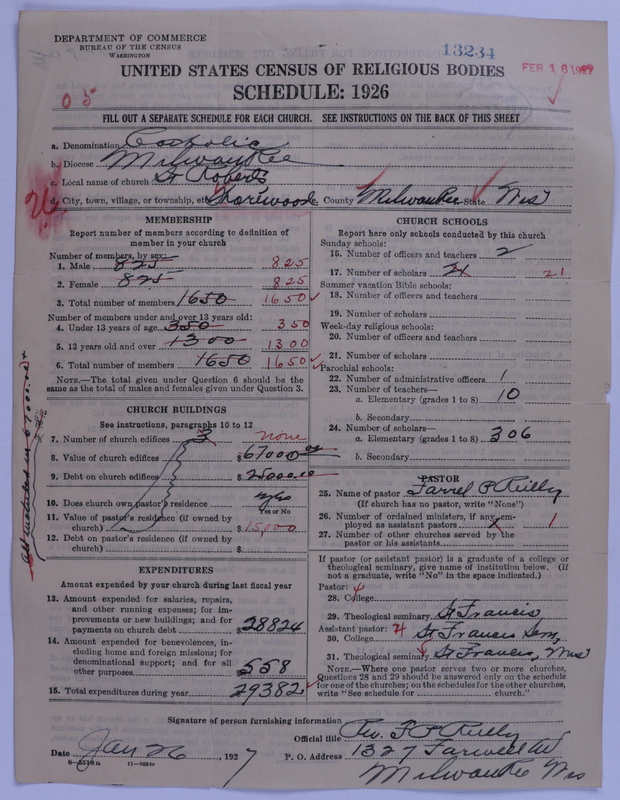 DEPARTMENT OF COMMERCE
BUREAU OF THE CENSUS
WASHINGTON
13234
FEB 16 1927
UNITED STATES CENSUS OF RELIGIOUS BODIES
SCHEDULE: 1926
05
FILL OUT A SEPARATE SCHEDULE FOR EACH CHURCH. SEE INSTRUCTIONS ON THE BACK OF THIS SHEET
a. Denomination Catholic
b. Diocese Milwaukee
c. Local name of church St Roberts
d. City, town, village, or township, etc Shorewood County Milwaukee State Wis
MEMBERSHIP
Report number of members according to definition of
member in your church
Number of members, by sex:
1. Male 825 825
2. Female 825 825
3. Total number of members 1650 1650
Number of members under and over 13 years old:
4. Under 13 years of age 350 350
5. 13 years old and over 1300 1300
6. Total number of members 1650 1650
NOTE.—The total given under Question 6 should be
same as the total of males and females given under Question 3.
CHURCH BUILDINGS
See instructions, paragraphs 10 to 12
7. Number of church edifices 3 none
8. Value of church edifices $67000.00
9. Debt on church edifices $25000.00
10. Does church own pastor's residence yes
Yes or No
11. Value of pastor's residence (if owned by
church) $15,000
12. Debt on pastor's residence (if owned by
church) $
EXPENDITURES
Amount expended by your church during last fiscal year
13. Amount expended for salaries, repairs,
and other running expenses; for im-
provements or new buildings; and for
payments on church debt $28824
14. Amount expended for benevolences, in-
cluding home and foreign missions; for
denominational support; and for all
other purposes $558
15. Total expenditures during year 29382
CHURCH SCHOOLS
Report here only schools conducted by this church
Sunday schools:
16. Number of officers and teachers 2
17. Number of scholars 21 21
Summer vacation Bible schools:
18. Number of officers and teachers
19. Number of scholars
Week-day religious schools:
20. Number of officers and teachers
21. Number of scholars
Parochial schools:
22. Number of administrative officers 1
23. Number of teachers—
a. Elementary (grades 1 to 8) 10
b. Secondary
24. Number of scholars—
a. Elementary (grades 1 to 8) 306
b. Secondary
PASTOR
25. Name of pastor Farrel P Reilly
(If church has no pastor, write "None")
26. Number of ordained ministers, if any em-
ployed as assistant pastors 1
27. Number of other churches served by the
pastor or his assistants
If pastor (or assistant pastor) is a graduate of a college or
theological seminary, give name of institution below. (If
not a graduate, write "No" in the space indicated.)
Pastor: 4
28. College
29. Theological seminary St Francis
Assistant pastor: 4
30. College St Francis Sem,
31. Theological seminary St Francis, Wis
NOTE.—Where one pastor serves two or more churches,
Questions 28 and 29 should be answered only on the schedule
for one of the churches; on the schedules for the other churches,
write "See schedule for church."
Signature of person furnishing information
Official title Rev. F P Reilly
Date Jan 26, 1927 P. O. Address 1327 Farwell Av
8-5518a 11-9064a
Milwaukee Wis